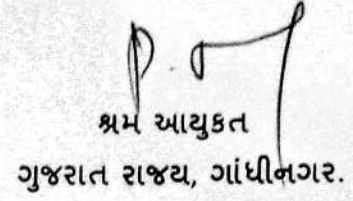 શ્રમ આયુકત
ગુજરાત રાજ્ય, ગાંધીનગર.